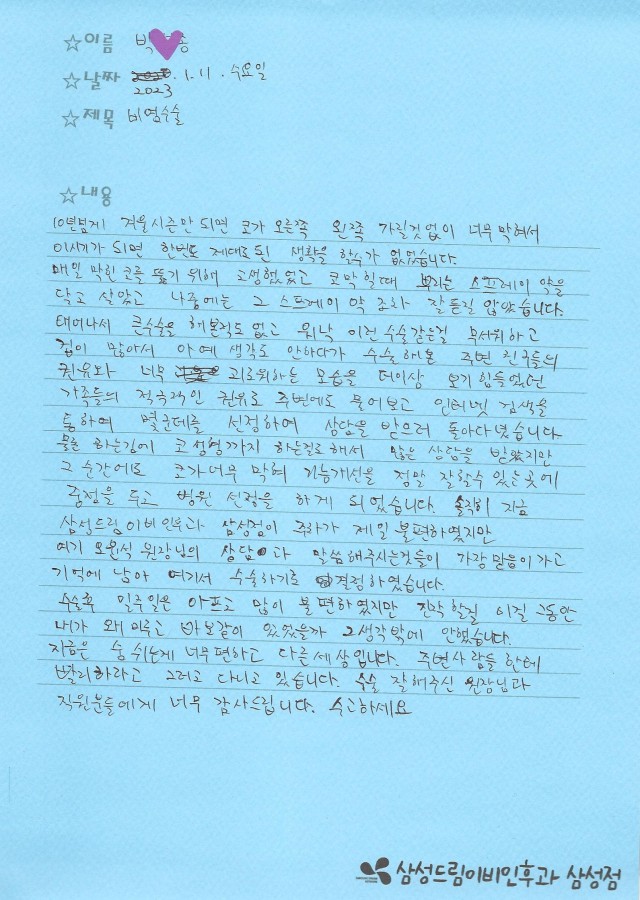 ☆이름 박 종
☆날짜 1. 11. 수요일
2023
☆제목 비염수술
☆내용
10년넘게 겨울시즌만 되면 코가 오른쪽 왼쪽 가릴것없이 너무 막혀서
이시기가 되면 한번도 제대로된 생활을 할수가 없었습니다.
매일 막힌 코를 뚫기 위해 고생했었고 코막힐때 뿌리는 스프레이 약을
달고 살았고 나중에는 그 스프레이 약 조차 잘듣질 않았습니다.
태어나서 큰수술을 해본적도 없고 워낙 이런 수술같은걸 무서워하고
겁이 많아서 아예 생각도 안하다가 수술 해본 주변 친구들의
권유와 너무 괴로워하는 모습을 더이상 보기 힘들었던
가족들의 적극적인 권유로 주변에도 물어보고 인터넷 검색을
통하여 몇군데를 선정하여 상담을 받으러 돌아다녔습니다
물론 하는김에 코성형까지 하는걸로해서 많은 상담을 받았지만
그 순간에도 코가너무 막혀 기능개선을 정말 잘할수 있는곳에
중점을 두고 병원 선정을 하게 되었습니다. 솔직히 지금
삼성드림이비인후과 삼성점이 주차가 제일 불편하였지만
여기 오원석 원장님의 상담과 말씀해주시는것들이 가장 믿음이가고
기억에 남아 여기서 수술하기로 결정하였습니다.
수술후 일주일은 아프고 많이 불편하였지만 진작할걸 이걸 그동안
내가 왜 미루고 바보같이 있었을까 그생각밖에 안했습니다.
지금은 숨쉬는게 너무편하고 다른세상입니다. 주변사람들한테
빨리하라고 그러고 다니고 있습니다. 수술 잘해주신 원장님과
직원분들에게 너무 감사드립니다. 수고하세요
삼성드림이비인후과 삼성점